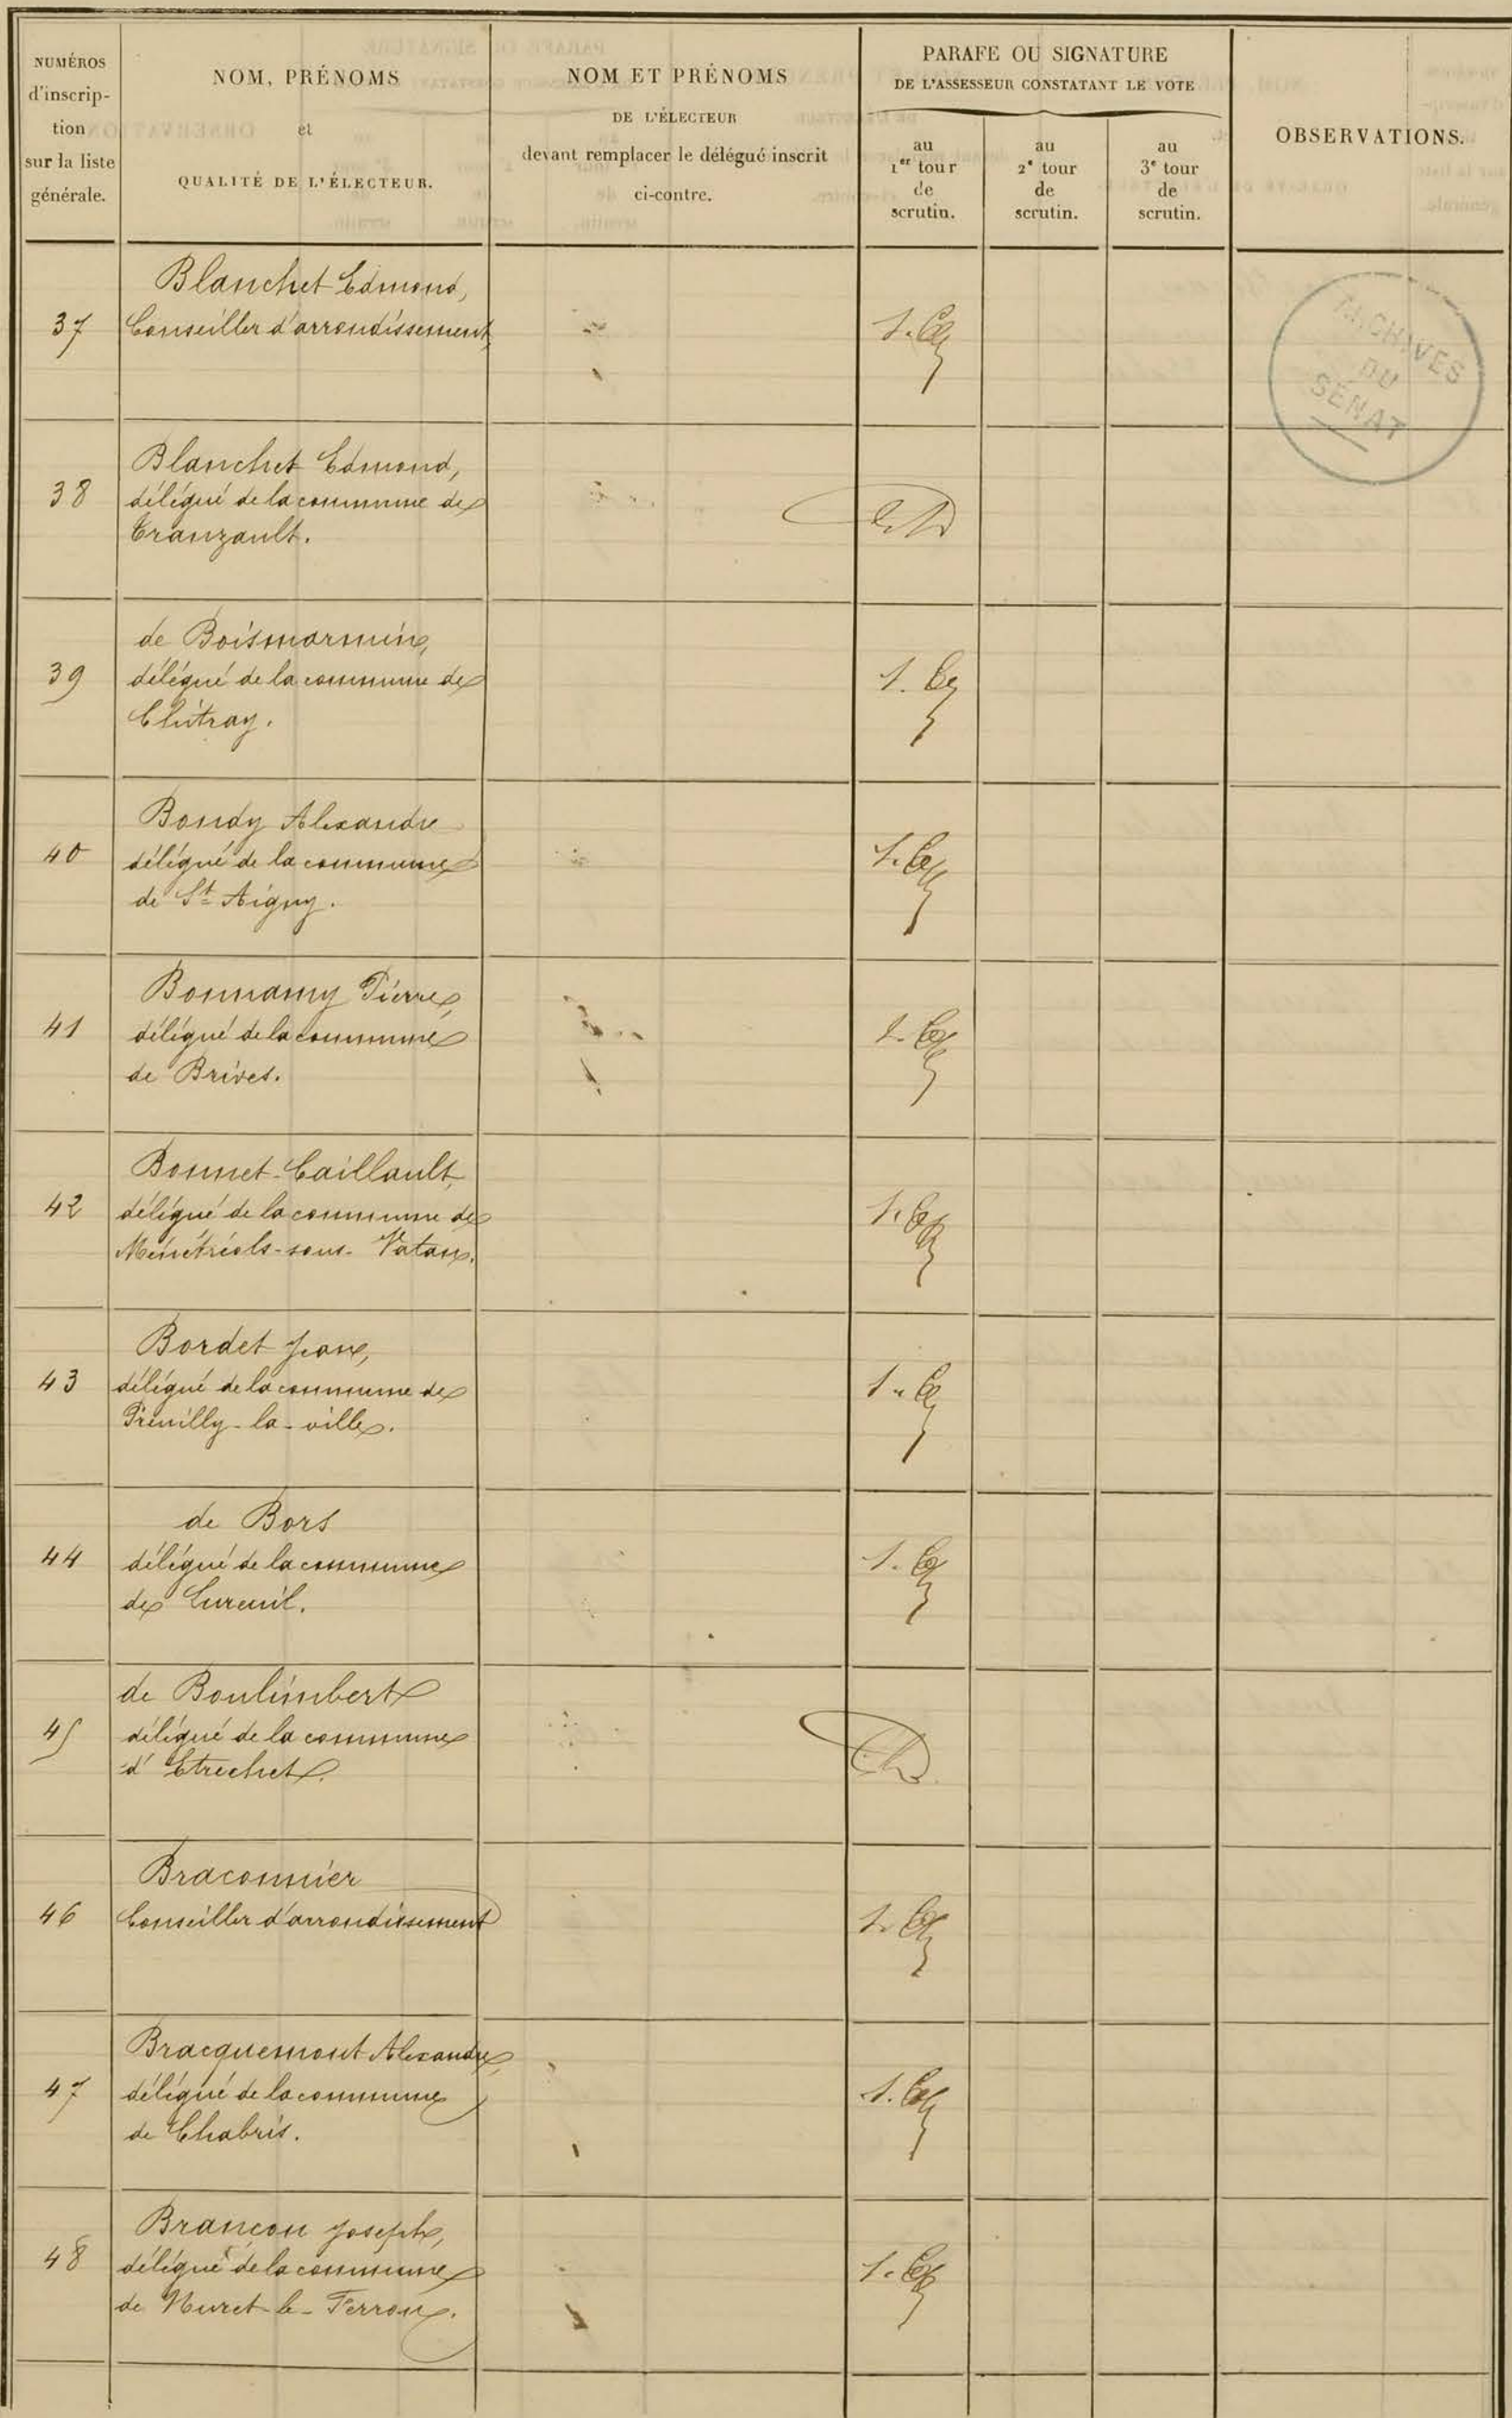 NUMÉROS
d'inscrip-
tion
sur la liste
générale.
NOM, PRÉNOMS
et
QUALITÉ DE L'ÉLECTEUR.
NOM ET PRÉNOMS
DE L'ÉLECTEUR
devant remplacer le délégué inscrit
ci-contre.
PARAFE OU SIGNATURE
DE L'ASSESSEUR CONSTATANT LE VOTE
au
1er tour
de
scrutin.
au
2e tour
de
scrutin.
au
3e tour
de
scrutin.
OBSERVATIONS.
ARCHIVES
DU
SÉNAT
Blanchet Edmond,
37 Conseiller d'arrondissement,
Blanchet Edmond,
38 délégué de la commune de
Tranzault.
de Boismarmin,
39 délégué de la commune de
Chitray.
Bondy Alexandre
40 délégué de la commune
de St Aigny.
Bonnamy Pierre,
41 délégué de la commune
de Brives.
Bonnet-Caillault,
42 délégué de la commune de
Ménétréols-sous-Vatan.
Bordet Jean,
43 délégué de la commune de
Preuilly-la-ville.
de Bors
44 délégué de la commune
de Lureuil.
de Boulimbert
45 délégué de la commune
d'Etrechet.
Braconnier
46 Conseiller d'arrondissement
Bracquemont Alexandre,
47 délégué de la commune
de Chabris.
Brançon Joseph,
48 délégué de la commune
de Nuret-le-Ferron.